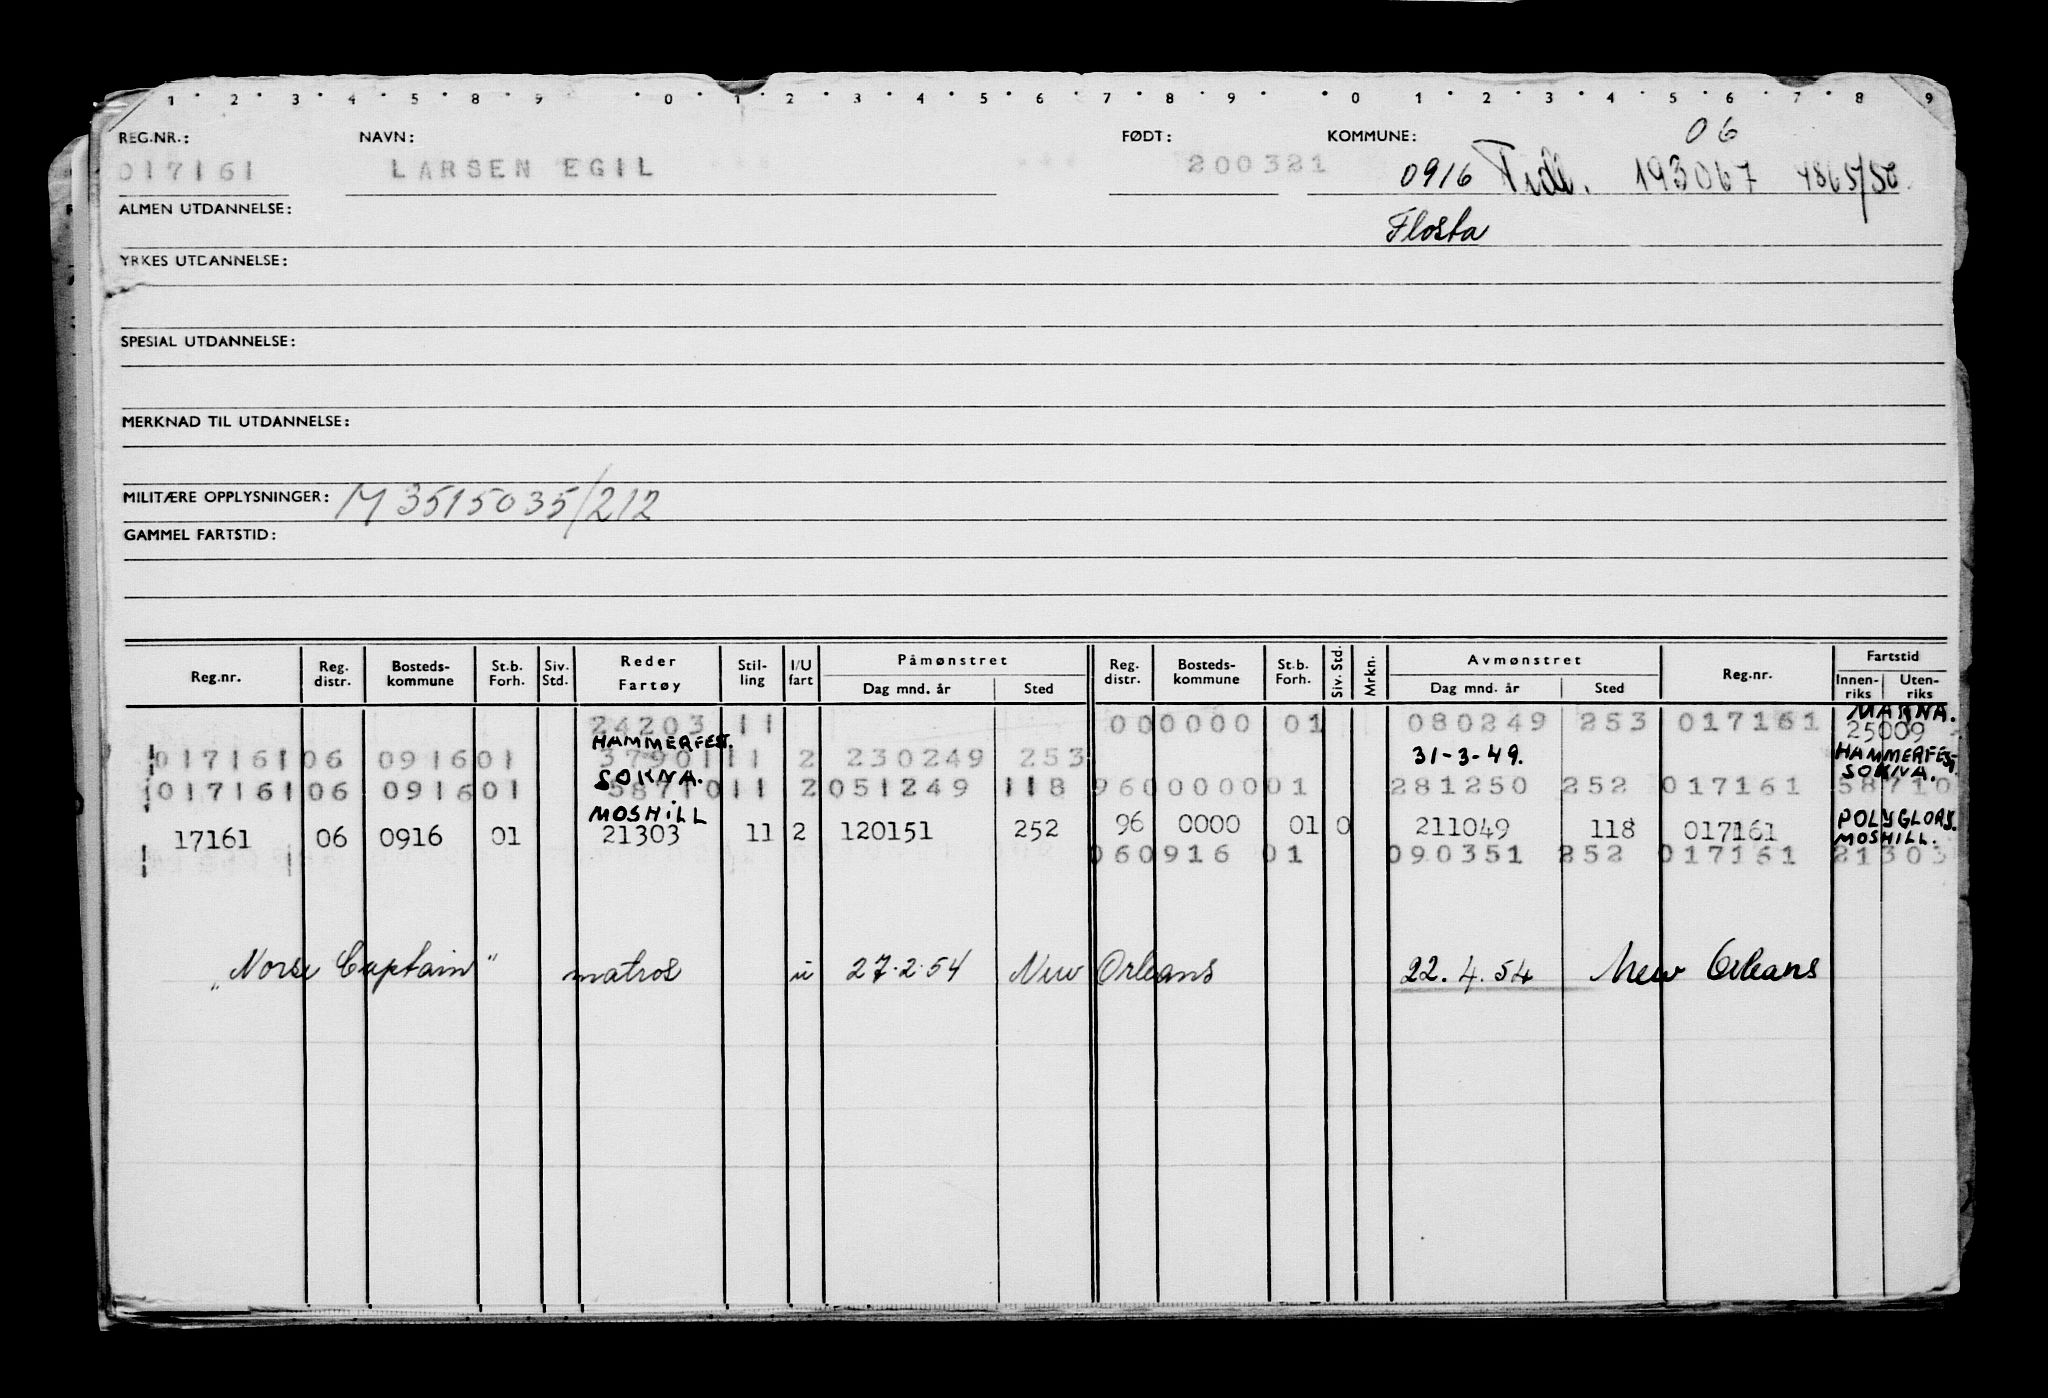 1 2 3 4 5 8 9 0 1 2 3 4 5 6 7 8 9 0 1 2 3 4 5 6 7 8 9
REG.NR.: NAVN: FØDT: KOMMUNE: 06
017161 LARSEN EGIL 200321 0916 Tidl. 193067 4865/50
ALMEN UTDANNELSE: Flosta
YRKES UTDANNELSE:
SPESIAL UTDANNELSE:
MERKNAD TIL UTDANNELSE:
MILITÆRE OPPLYSNINGER: M 3515035/212
GAMMEL FARTSTID:
Reg.nr. Reg. distr. Bosteds-kommune St.b. Forh. Siv. Std. Reder Fartøy Stil-ling I/U fart Påmønstret Dag mnd. år Sted Reg. distr. Bosteds-kommune St.b. Forh. Siv. Std. Mrkn. Avmønstret Dag mnd. år Sted Reg.nr. Fartstid Innen-riks Uten-riks
24203 11 000000 01 080249 253 017161 MAKNA. 25009
HAMMERFEST.
017161 06 0916 01 37901 11 2 230249 253 31-3-49. HAMMERFEST
SOKNA. SOKNA.
017161 06 0916 01 58710 11 2 051249 118 96 0000 00 01 281250 252 017161 58710
MOSHILL POLYGLORY.
17161 06 0916 01 21303 11 2 120151 252 96 0000 01 0 211049 118 017161 MOSHILL.
060916 01 090351 252 017161 21303
"Norse Captain" matros u 27.2.54 New Orleans 22.4.54 New Orleans